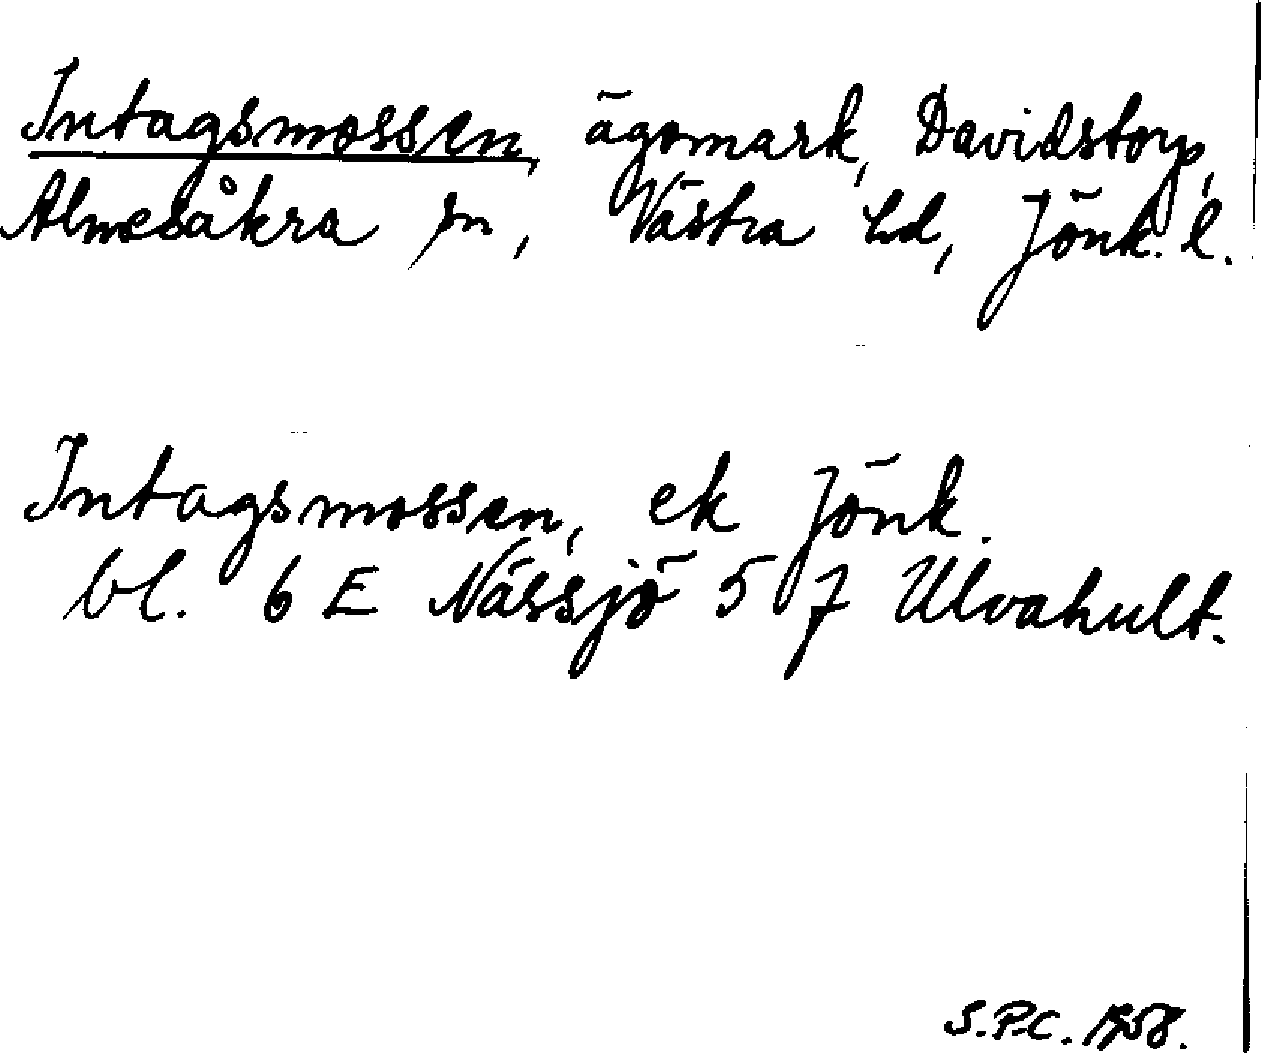 Intagsmossen, ägomark, Davidstorp,
Almesåkra sn, Västra hd, Jönk. l.
Intagsmossen, ek Jönk.
bl. 6 E Nässjö 5 7 Ulvahult.
S.P.C. 1958.